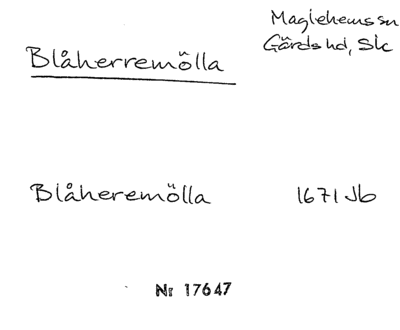 Maglehems sn
Gärds hd, Sk
Blåherremölla
Blåheremölla 1671 Jb
Nr 17647